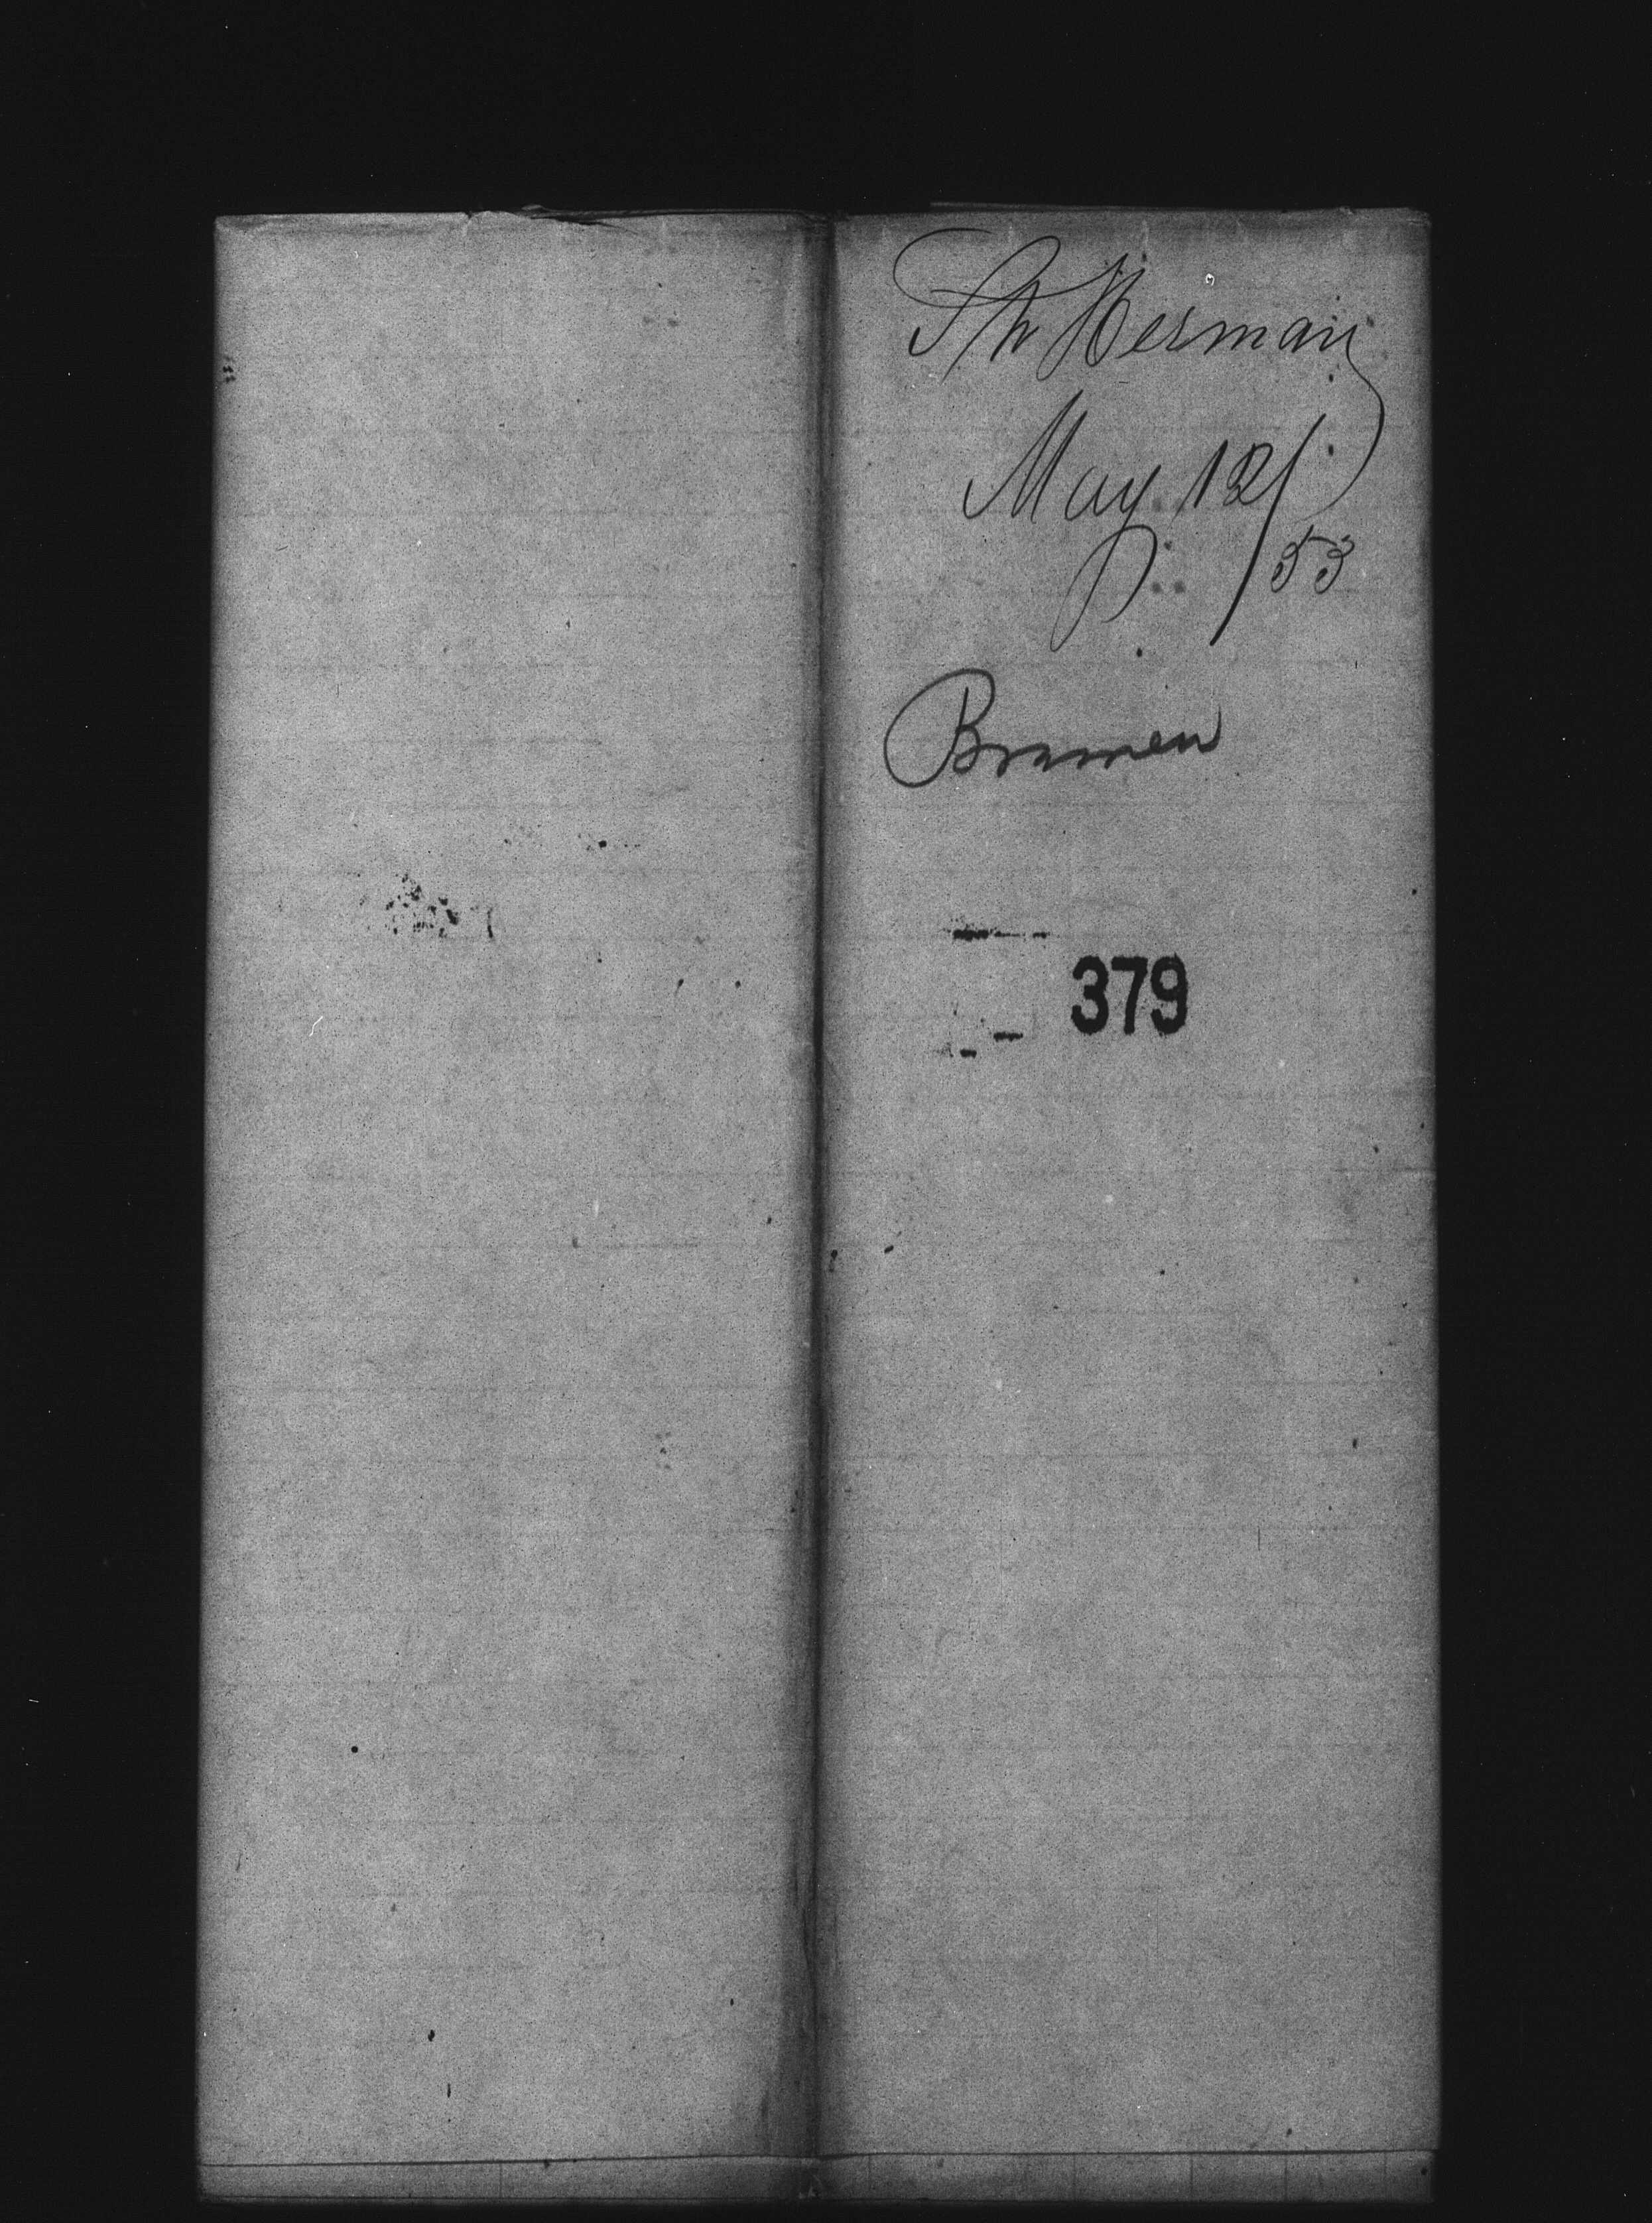 Sh Herman
May 12/
/53
Bremen
379